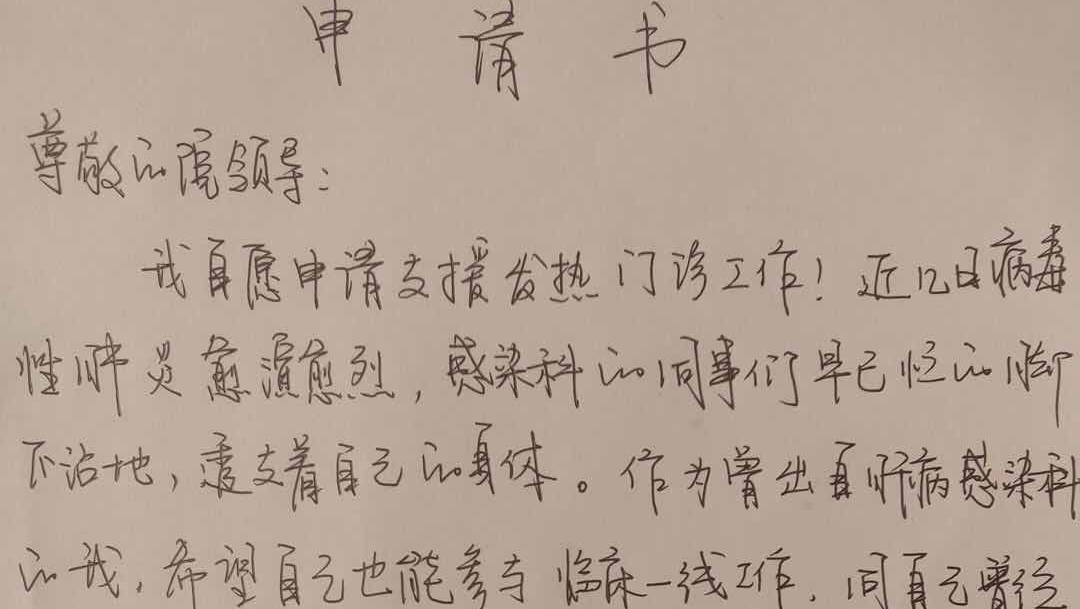 申请书
尊敬的院领导：
我自愿申请支援发热门诊工作！近几日病毒
性肺炎愈演愈烈，感染科的同事们早已忙的脚
不沾地，透支着自己的身体。作为曾出自肝病感染科
的我，希望自己也能参与临床一线工作，同自己曾经